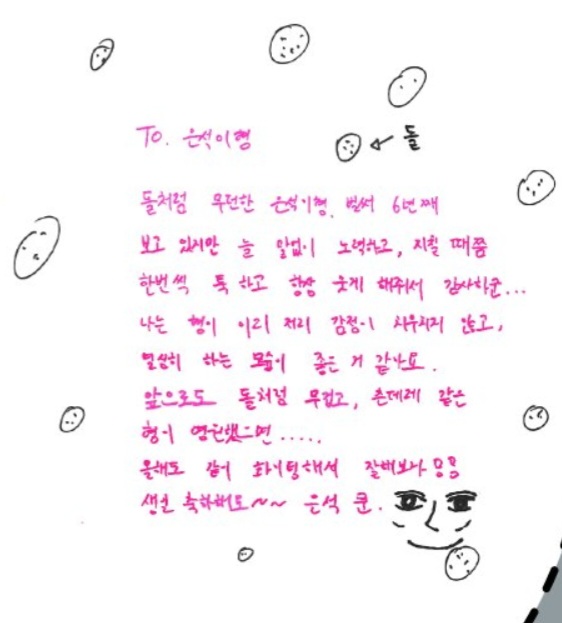 To. 은석이형
돌
돌처럼 무던한 은석이형. 벌써 6년째
보고 있지만 늘 말없이 노력하고, 지칠 때쯤
한번씩 툭 하고 항상 웃게 해줘서 감사하군...
나는 형이 이리 저리 감정이 치우치지 않고,
열심히 하는 모습이 좋은 거 같아요.
앞으로도 돌처럼 무겁고, 츤데레 같은
형이 영원했으면.....
올해도 같이 화이팅해서 잘해보자 웅웅
생일 축하해도~~ 은석 쿤.